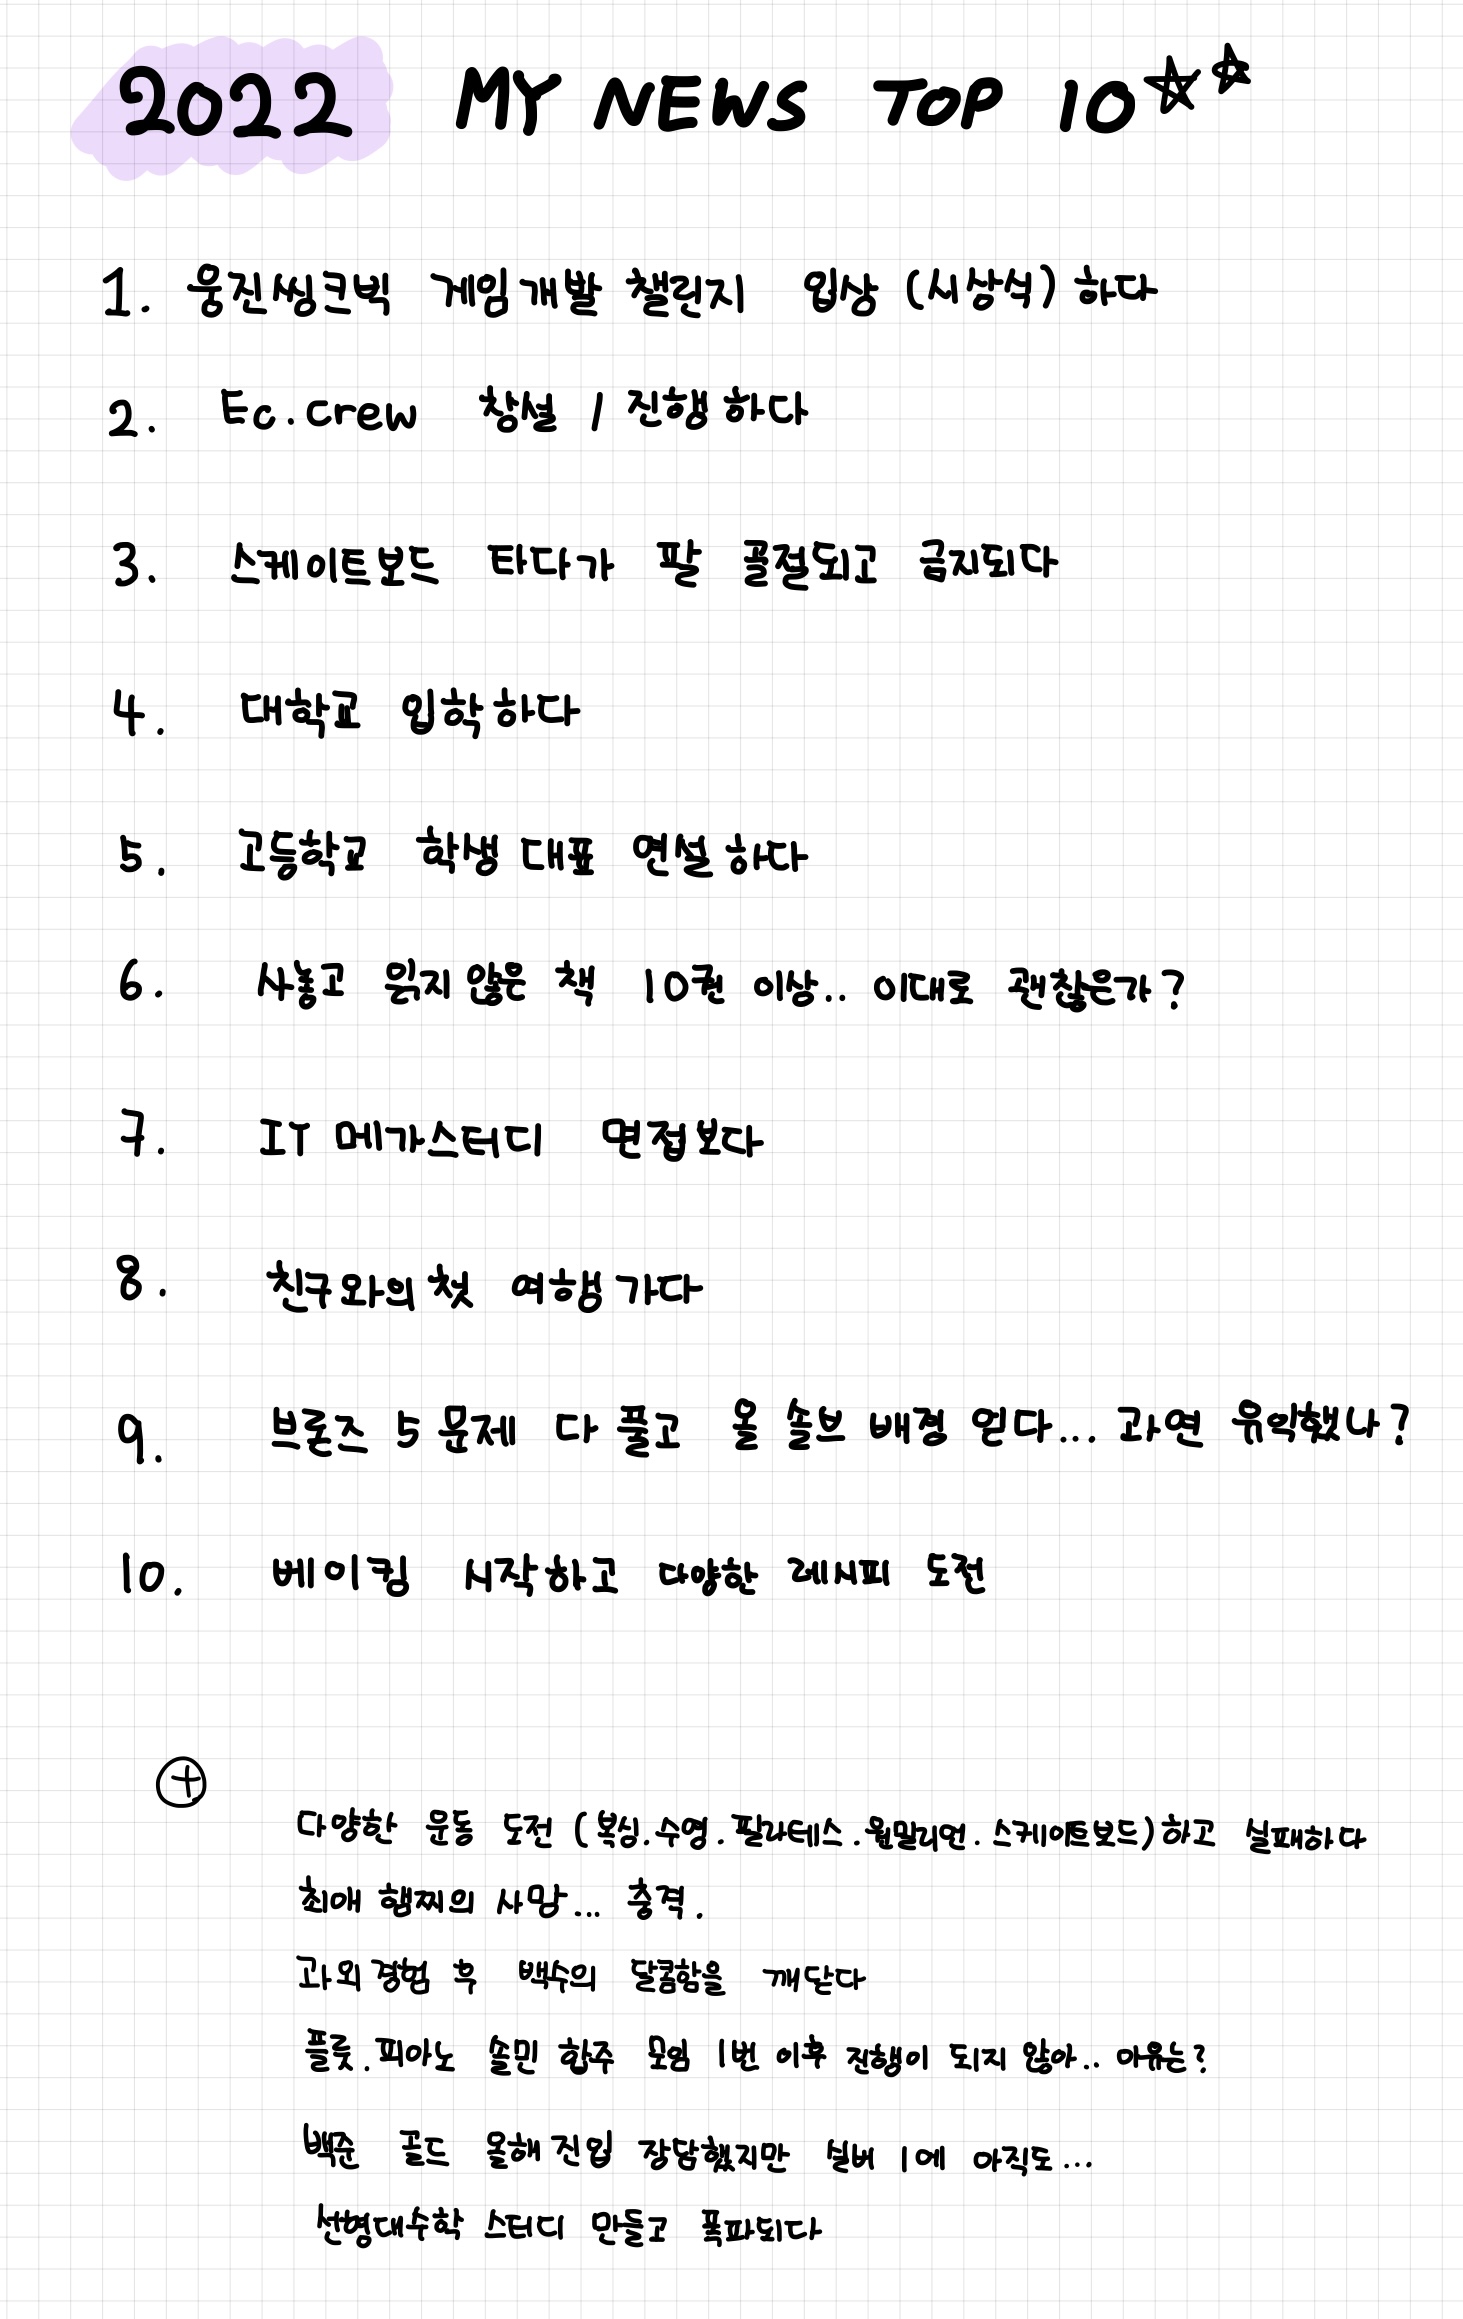 2022 MY NEWS TOP 10☆☆
1. 웅진씽크빅 게임개발 챌린지 입상 (시상식) 하다
2. Ec.crew 창설 / 진행하다
3. 스케이트보드 타다가 팔 골절되고 금지되다
4. 대학교 입학하다
5. 고등학교 학생대표 연설하다
6. 사놓고 읽지않은 책 10권 이상.. 이대로 괜찮은가?
7. IT 메가스터디 면접보다
8. 친구와의 첫 여행가다
9. 브론즈 5문제 다 풀고 올 솔브 배경 얻다... 과연 유익했나?
10. 베이킹 시작하고 다양한 레시피 도전
+
다양한 운동 도전 (복싱.수영.필라테스.원밀리언.스케이트보드)하고 실패하다
최애 햄찌의 사망... 충격.
과외경험 후 백수의 달콤함을 깨닫다
플룻.피아노 솔민 합주 모임 1번 이후 진행이 되지 않아.. 이유는?
백준 골드 올해진입 장담했지만 실버 1에 아직도...
선형대수학 스터디 만들고 폭파되다